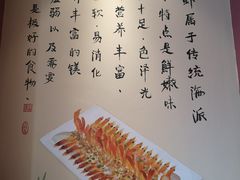 虾属于传统海派
特点是鲜嫩味
十足，色泽光
营养丰富，
软、易消化
丰富的镁
虚弱以及需要
是极好的食物。